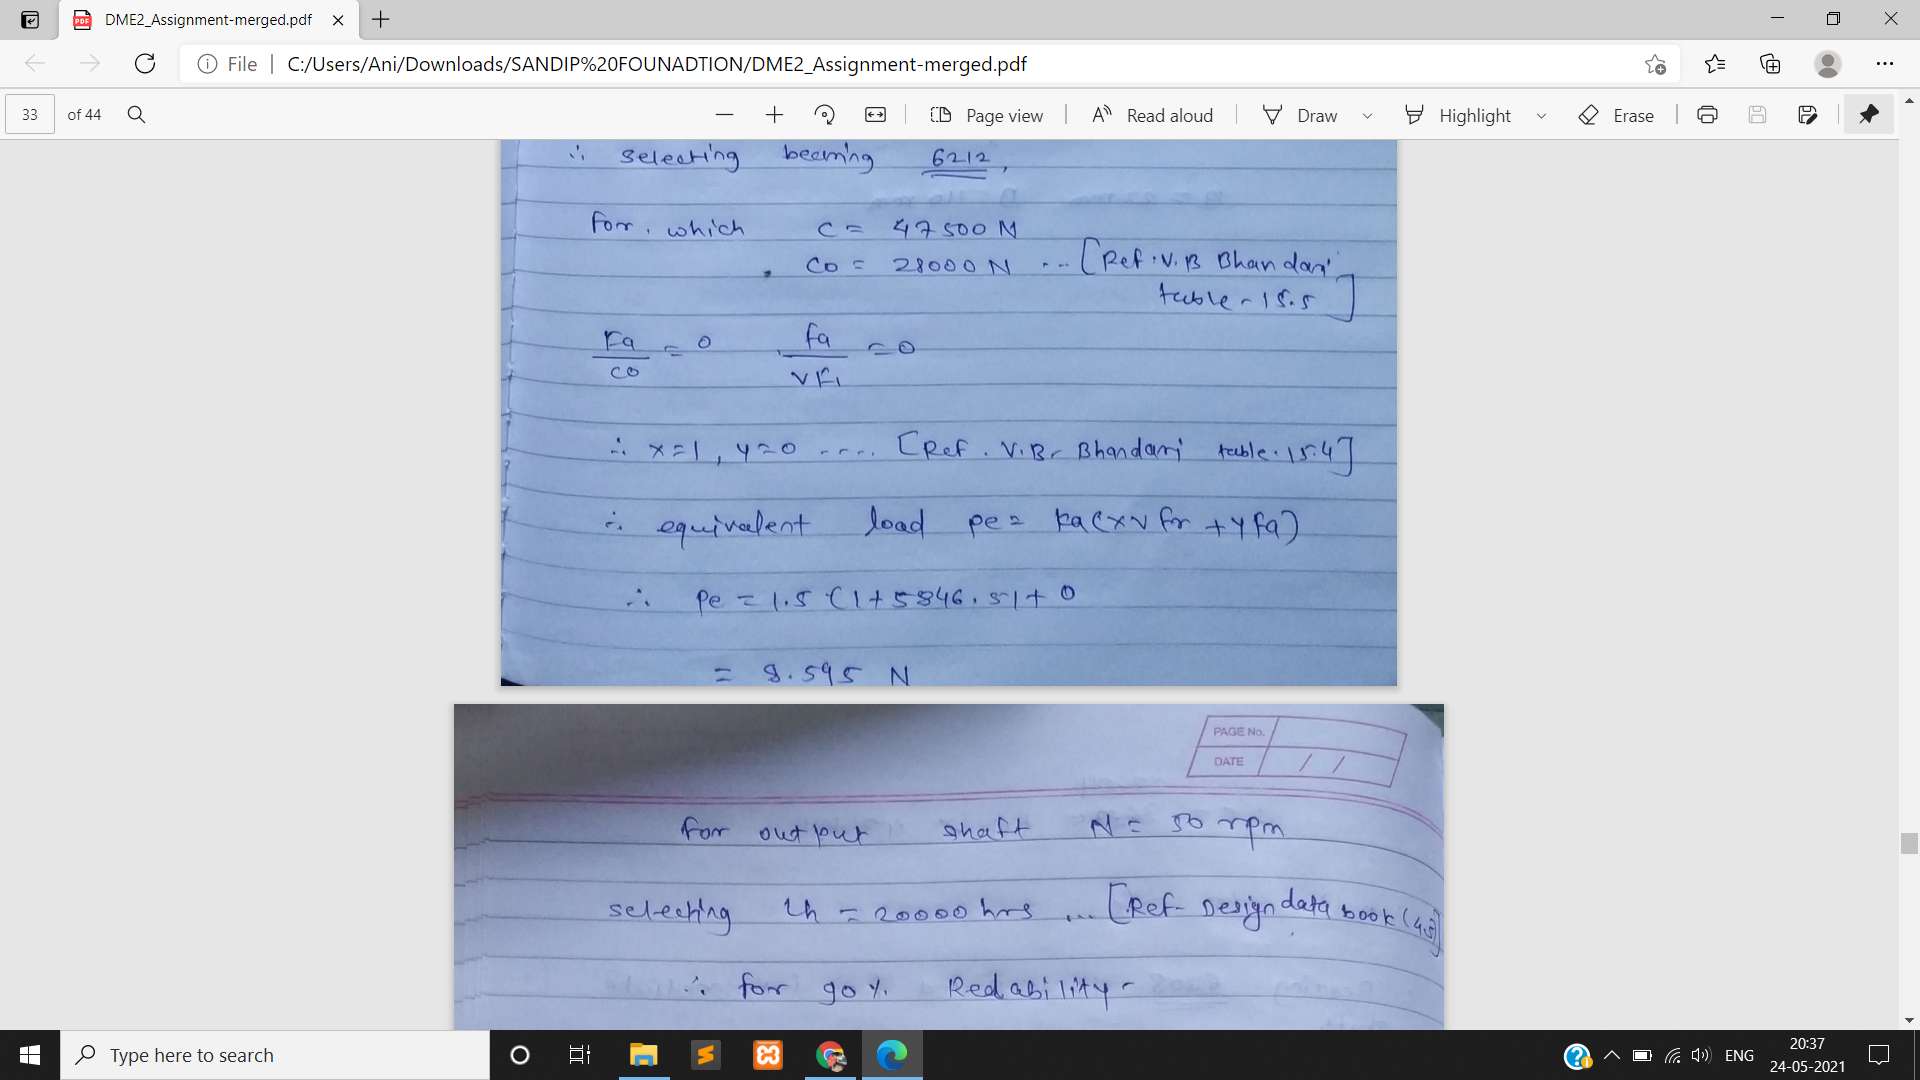 DME2_Assignment-merged.pdf
File
C:/Users/Ani/Downloads/SANDIP%20FOUNADTION/DME2_Assignment-merged.pdf
33 of 44
Page view
Read aloud
Draw
Highlight
Erase
∴ selecting bearing 6212,
for. which C = 47500 N
Co = 28000 N ... [Ref. V.B Bhandari
table - 15.5]
Fa/Co = 0 Fa/VFr = 0
∴ x=1, y=0 ..... [Ref. V.B. Bhandari table. 15.4]
∴ equivalent load pe = ka(xvfr + yfa)
∴ Pe = 1.5 (1+5846.51+ 0
= 8.595 N
PAGE No.
DATE / /
for output shaft N = 50 rpm
selecting Lh = 20000 hrs ... [Ref- Design data book (4.5)]
∴ for 90 %. Redability -
Type here to search
ENG
20:37
24-05-2021